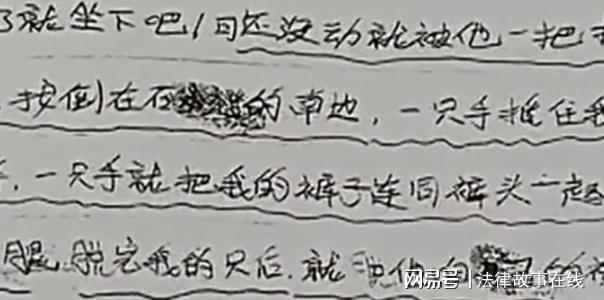 了就坐下吧 还没动就被他一把
按倒在石 的南边，一只手 住我
，一只手就把我的裤子连同裤头一起
腿 脱完我的 后，就 他的 的
网易号 | 法律故事在线